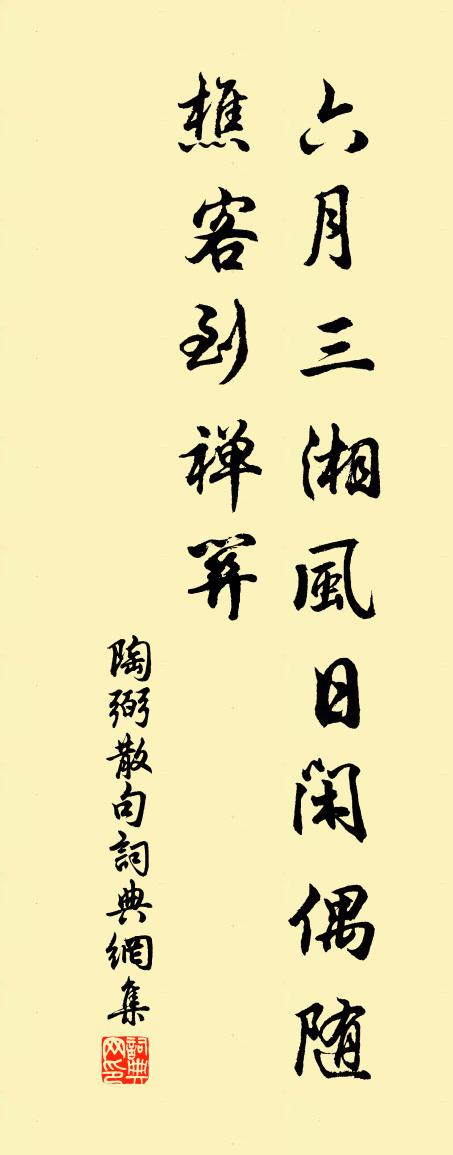 六月三湘風日闲偶随
樵客到禅関
陶弼散句詞典網集
詞典网印